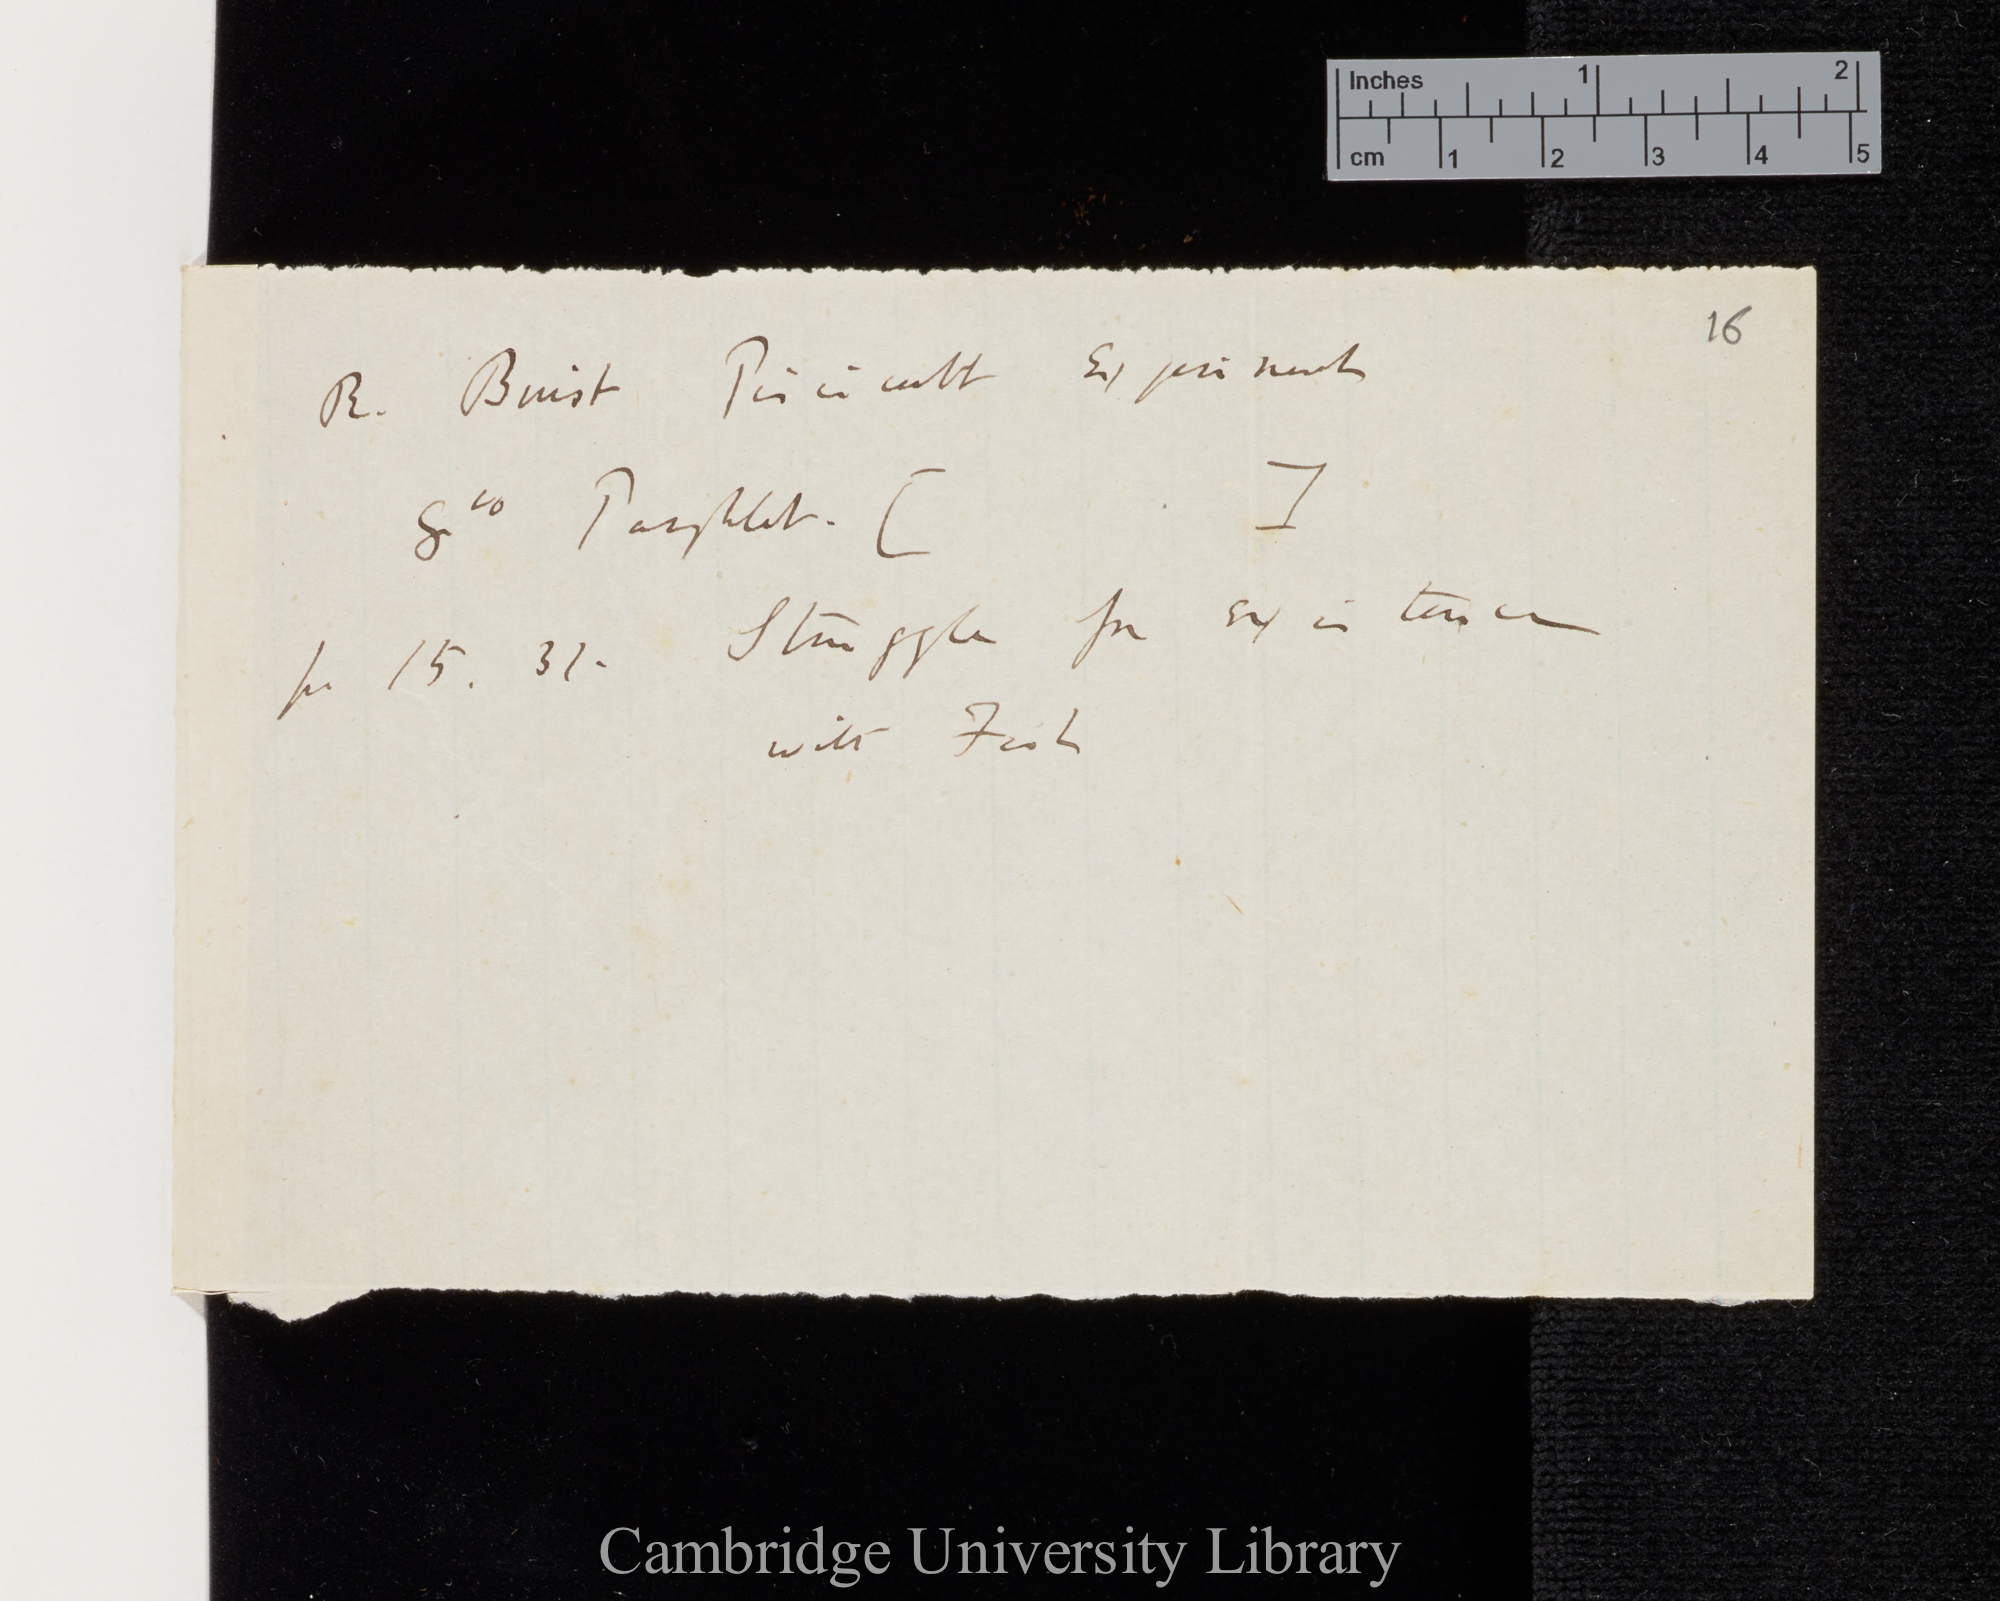 Inches 1 2
cm 1 2 3 4 5
16
R. Buist Piscicult Experiments
8vo Pamphlet. [ ]
p 15. 31. Struggle for existence
with Fish
Cambridge University Library